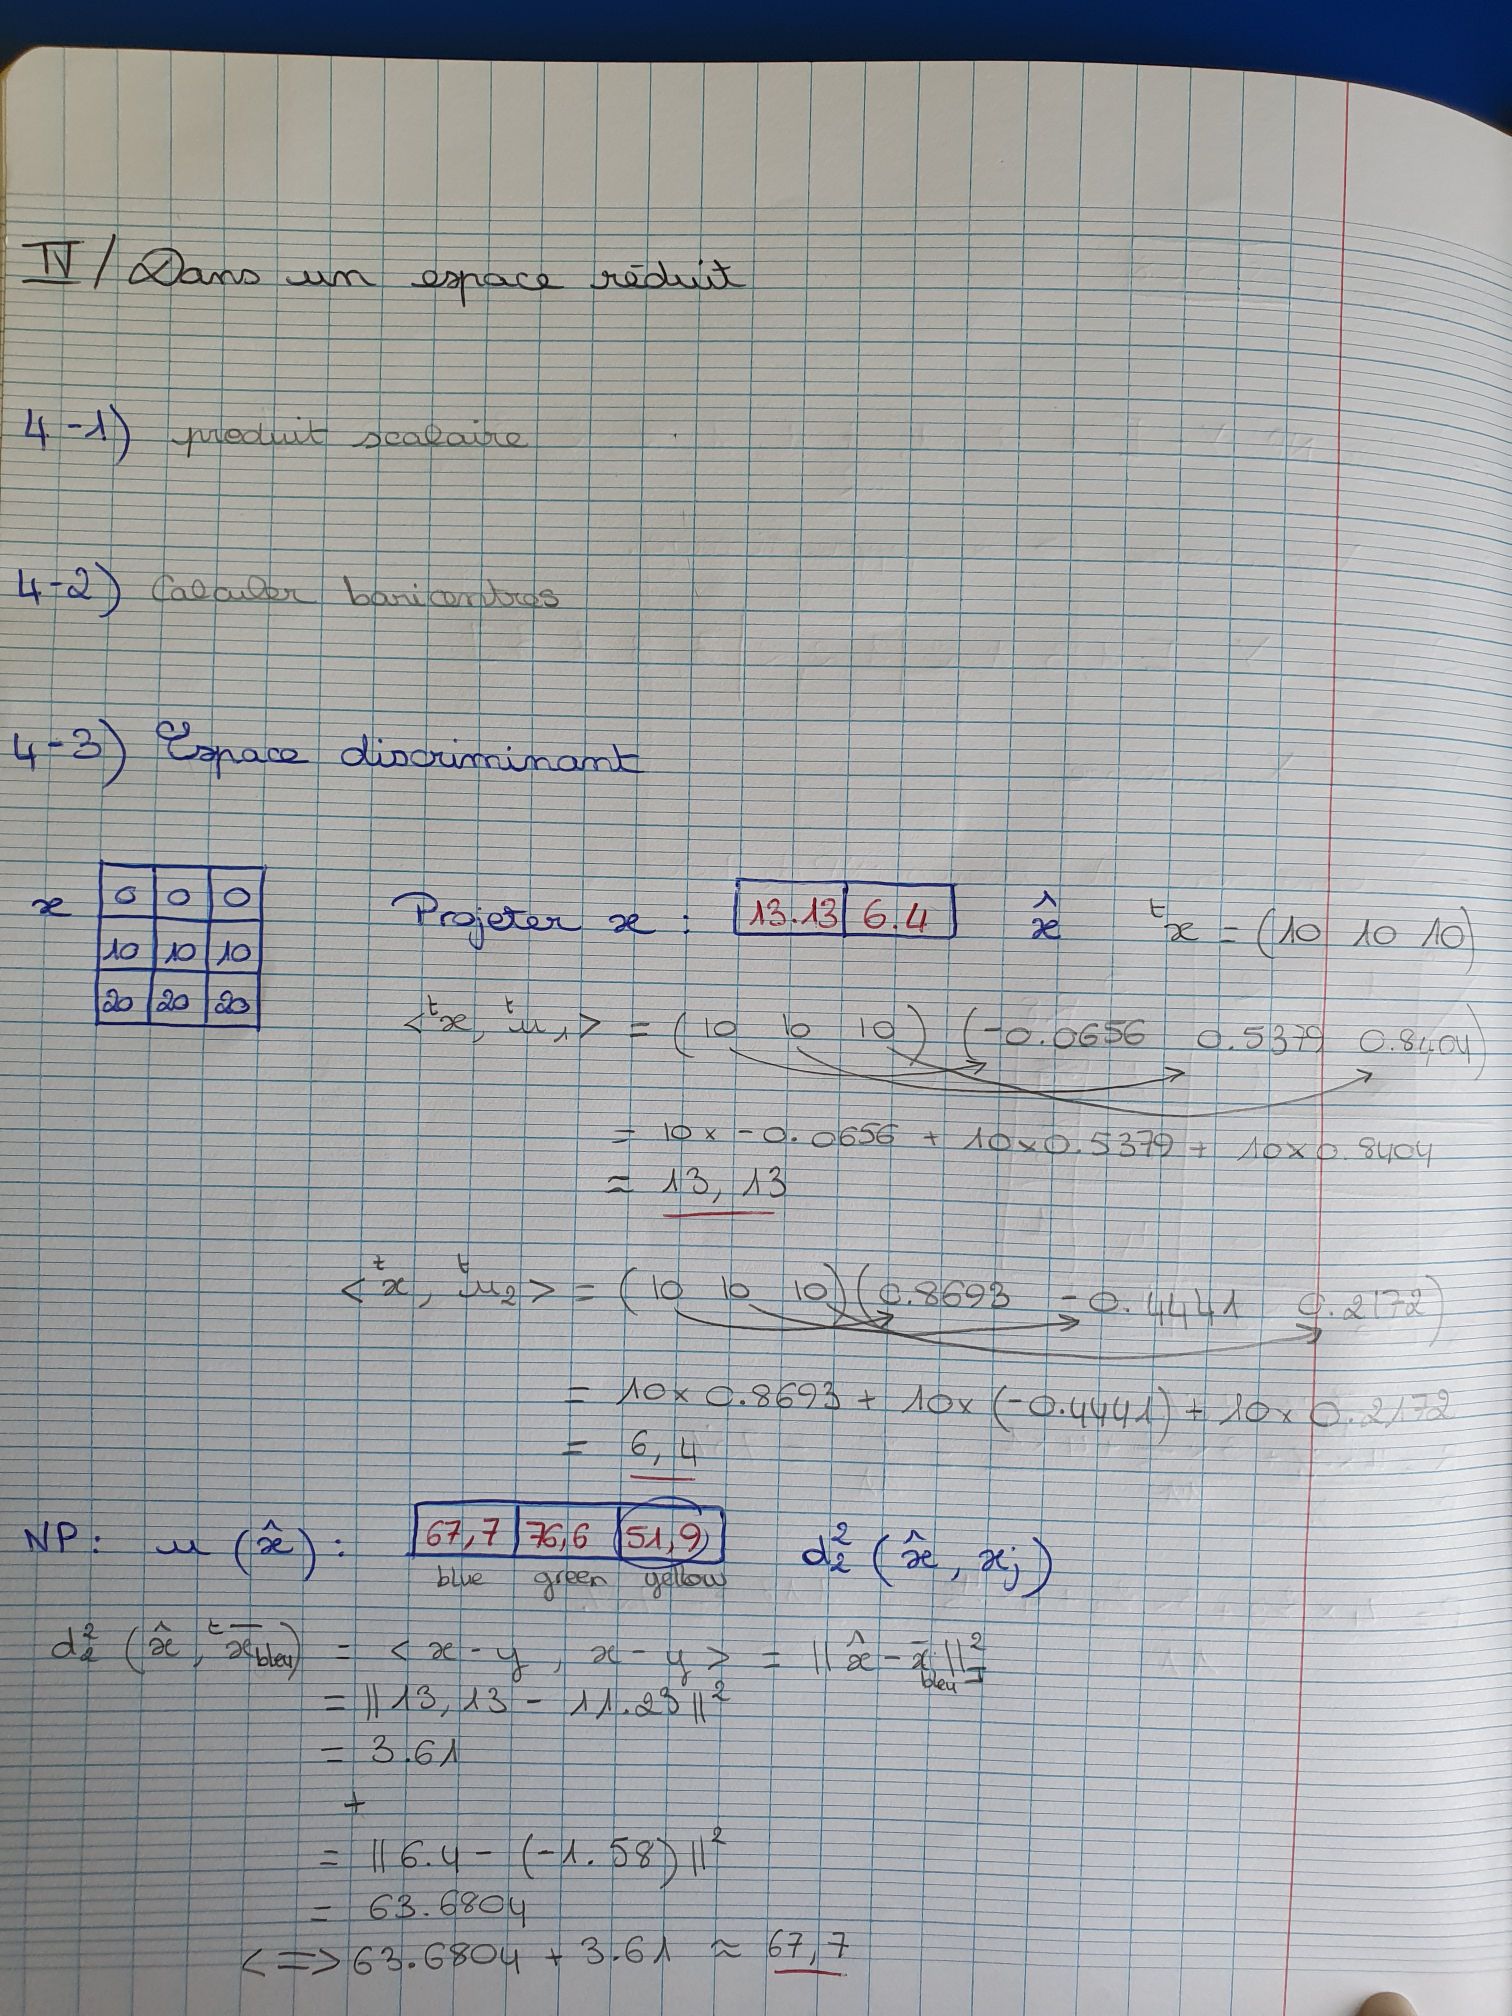 IV / Dans un espace réduit
4-1) produit scalaire
4-2) Calculer baricentres
4-3) Espace discriminant
x 0 0 0
10 10 10
20 20 20
Projeter x : 13.13 6.4 x̂ ᵗx = (10 10 10)
<ᵗx, ᵗu₁> = (10 10 10) (-0.0656 0.5379 0.8404)
= 10 x -0.0656 + 10x0.5379 + 10x0.8404
= 13,13
<ᵗx, ᵗu₂> = (10 10 10) (0.8693 -0.4441 0.2172)
= 10x0.8693 + 10x(-0.4441) + 10x0.2172
= 6,4
NP: u (x̂) : 67,7 76,6 51,9 d₂² (x̂, xj)
blue green yellow
d₂² (x̂, ᵗx̄bleu) = <x-y, x-y> = ||x̂ - x̄bleu||²
= ||13,13 - 11.23||²
= 3.61
+
= ||6.4 - (-1.58)||²
= 63.6804
<=> 63.6804 + 3.61 ≈ 67,7